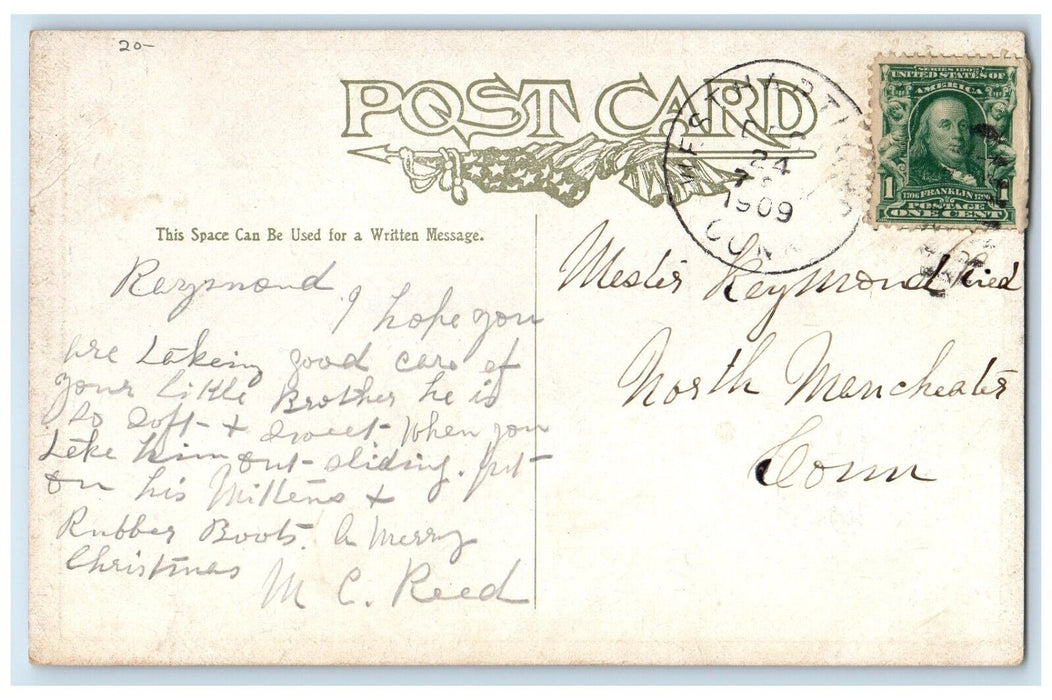 20-
POST CARD
WEST HARTFORD
DEC
24
7
1909
CONN
SERIES 1902
UNITED STATES OF
AMERICA
1 1706 FRANKLIN 1790 1
POSTAGE
ONE CENT
This Space Can Be Used for a Written Message.
Raymond
I hope you
are taking good care of
your little Brother he is
so soft + sweet. When you
take him out sliding. put
on his Mittens +
Rubber Boots. A Merry
Christmas
M C. Reed
Mester Reymond
North Manchester
Conn